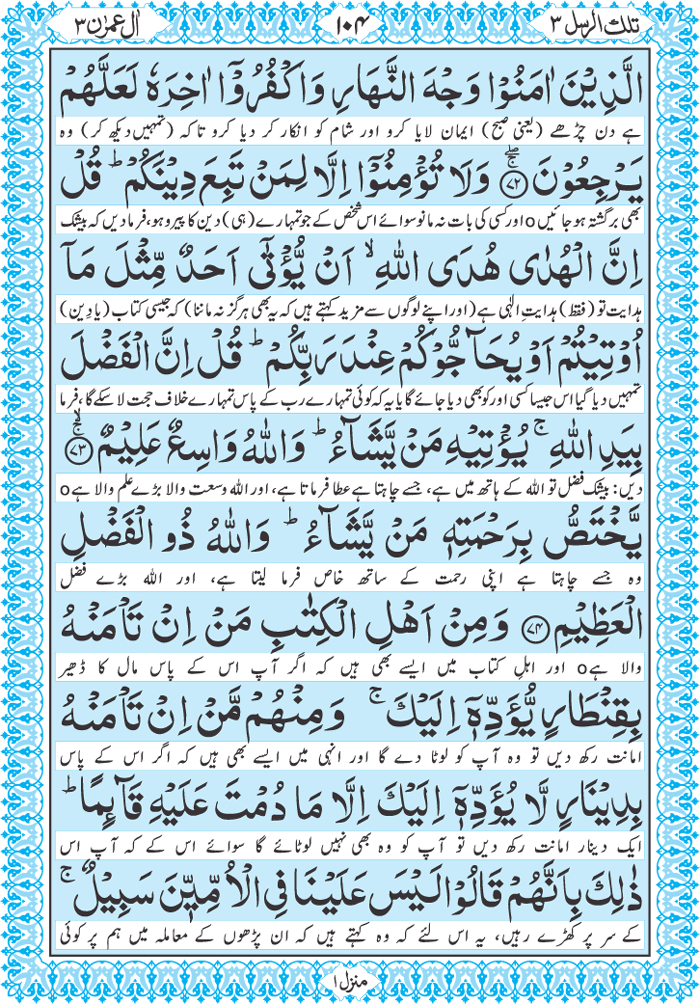 تلك الرسل ۳ ۱۰۴ اٰل عمرٰن ۳
الَّذِیْنَ اٰمَنُوْا وَجْهَ النَّهَارِ وَاكْفُرُوْۤا اٰخِرَهٗ لَعَلَّهُمْ
ہے دن چڑھے (یعنی صبح) ایمان لایا کرو اور شام کو انکار کر دیا کرو تاکہ (تمہیں دیکھ کر) وہ
یَرْجِعُوْنَ ۚۖ ﴿۷۲﴾ وَلَا تُؤْمِنُوْۤا اِلَّا لِمَنْ تَبِعَ دِیْنَكُمْ ؕ قُلْ
بھی برگشتہ ہو جائیں o اور کسی کی بات نہ مانو سوائے اس شخص کے جو تمہارے (ہی) دین کا پیرو ہو، فرما دیں کہ بیشک
اِنَّ الْهُدٰی هُدَی اللّٰهِ ۙ اَنْ یُّؤْتٰۤی اَحَدٌ مِّثْلَ مَاۤ
ہدایت تو (فقط) ہدایتِ الٰہی ہے (اور اپنے لوگوں سے مزید کہتے ہیں کہ یہ بھی ہرگز نہ ماننا) کہ جیسی کتاب (یا دین)
اُوْتِیْتُمْ اَوْ یُحَآجُّوْكُمْ عِنْدَ رَبِّكُمْ ؕ قُلْ اِنَّ الْفَضْلَ
تمہیں دیا گیا اس جیسا کسی اور کو بھی دیا جائے گا یا یہ کہ کوئی تمہارے رب کے پاس تمہارے خلاف حجت لا سکے گا، فرما
بِیَدِ اللّٰهِ ۚ یُؤْتِیْهِ مَنْ یَّشَآءُ ؕ وَاللّٰهُ وَاسِعٌ عَلِیْمٌ ۚۙ ﴿۷۳﴾
دیں: بیشک فضل تو اللہ کے ہاتھ میں ہے، جسے چاہتا ہے عطا فرماتا ہے، اور اللہ وسعت والا بڑے علم والا ہے o
یَّخْتَصُّ بِرَحْمَتِهٖ مَنْ یَّشَآءُ ؕ وَاللّٰهُ ذُو الْفَضْلِ
وہ جسے چاہتا ہے اپنی رحمت کے ساتھ خاص فرما لیتا ہے، اور اللہ بڑے فضل
الْعَظِیْمِ ﴿۷۴﴾ وَمِنْ اَهْلِ الْكِتٰبِ مَنْ اِنْ تَاْمَنْهُ
والا ہے o اور اہلِ کتاب میں ایسے بھی ہیں کہ اگر آپ اس کے پاس مال کا ڈھیر
بِقِنْطَارٍ یُّؤَدِّهٖۤ اِلَیْكَ ۚ وَمِنْهُمْ مَّنْ اِنْ تَاْمَنْهُ
امانت رکھ دیں تو وہ آپ کو لوٹا دے گا اور انہی میں ایسے بھی ہیں کہ اگر اس کے پاس
بِدِیْنَارٍ لَّا یُؤَدِّهٖۤ اِلَیْكَ اِلَّا مَا دُمْتَ عَلَیْهِ قَآئِمًا ؕ
ایک دینار امانت رکھ دیں تو آپ کو وہ بھی نہیں لوٹائے گا سوائے اس کے کہ آپ اس
ذٰلِكَ بِاَنَّهُمْ قَالُوْا لَیْسَ عَلَیْنَا فِی الْاُمِّیّٖنَ سَبِیْلٌ ۚ
کے سر پر کھڑے رہیں، یہ اس لئے کہ وہ کہتے ہیں کہ ان پڑھوں کے معاملہ میں ہم پر کوئی
منزل ۱